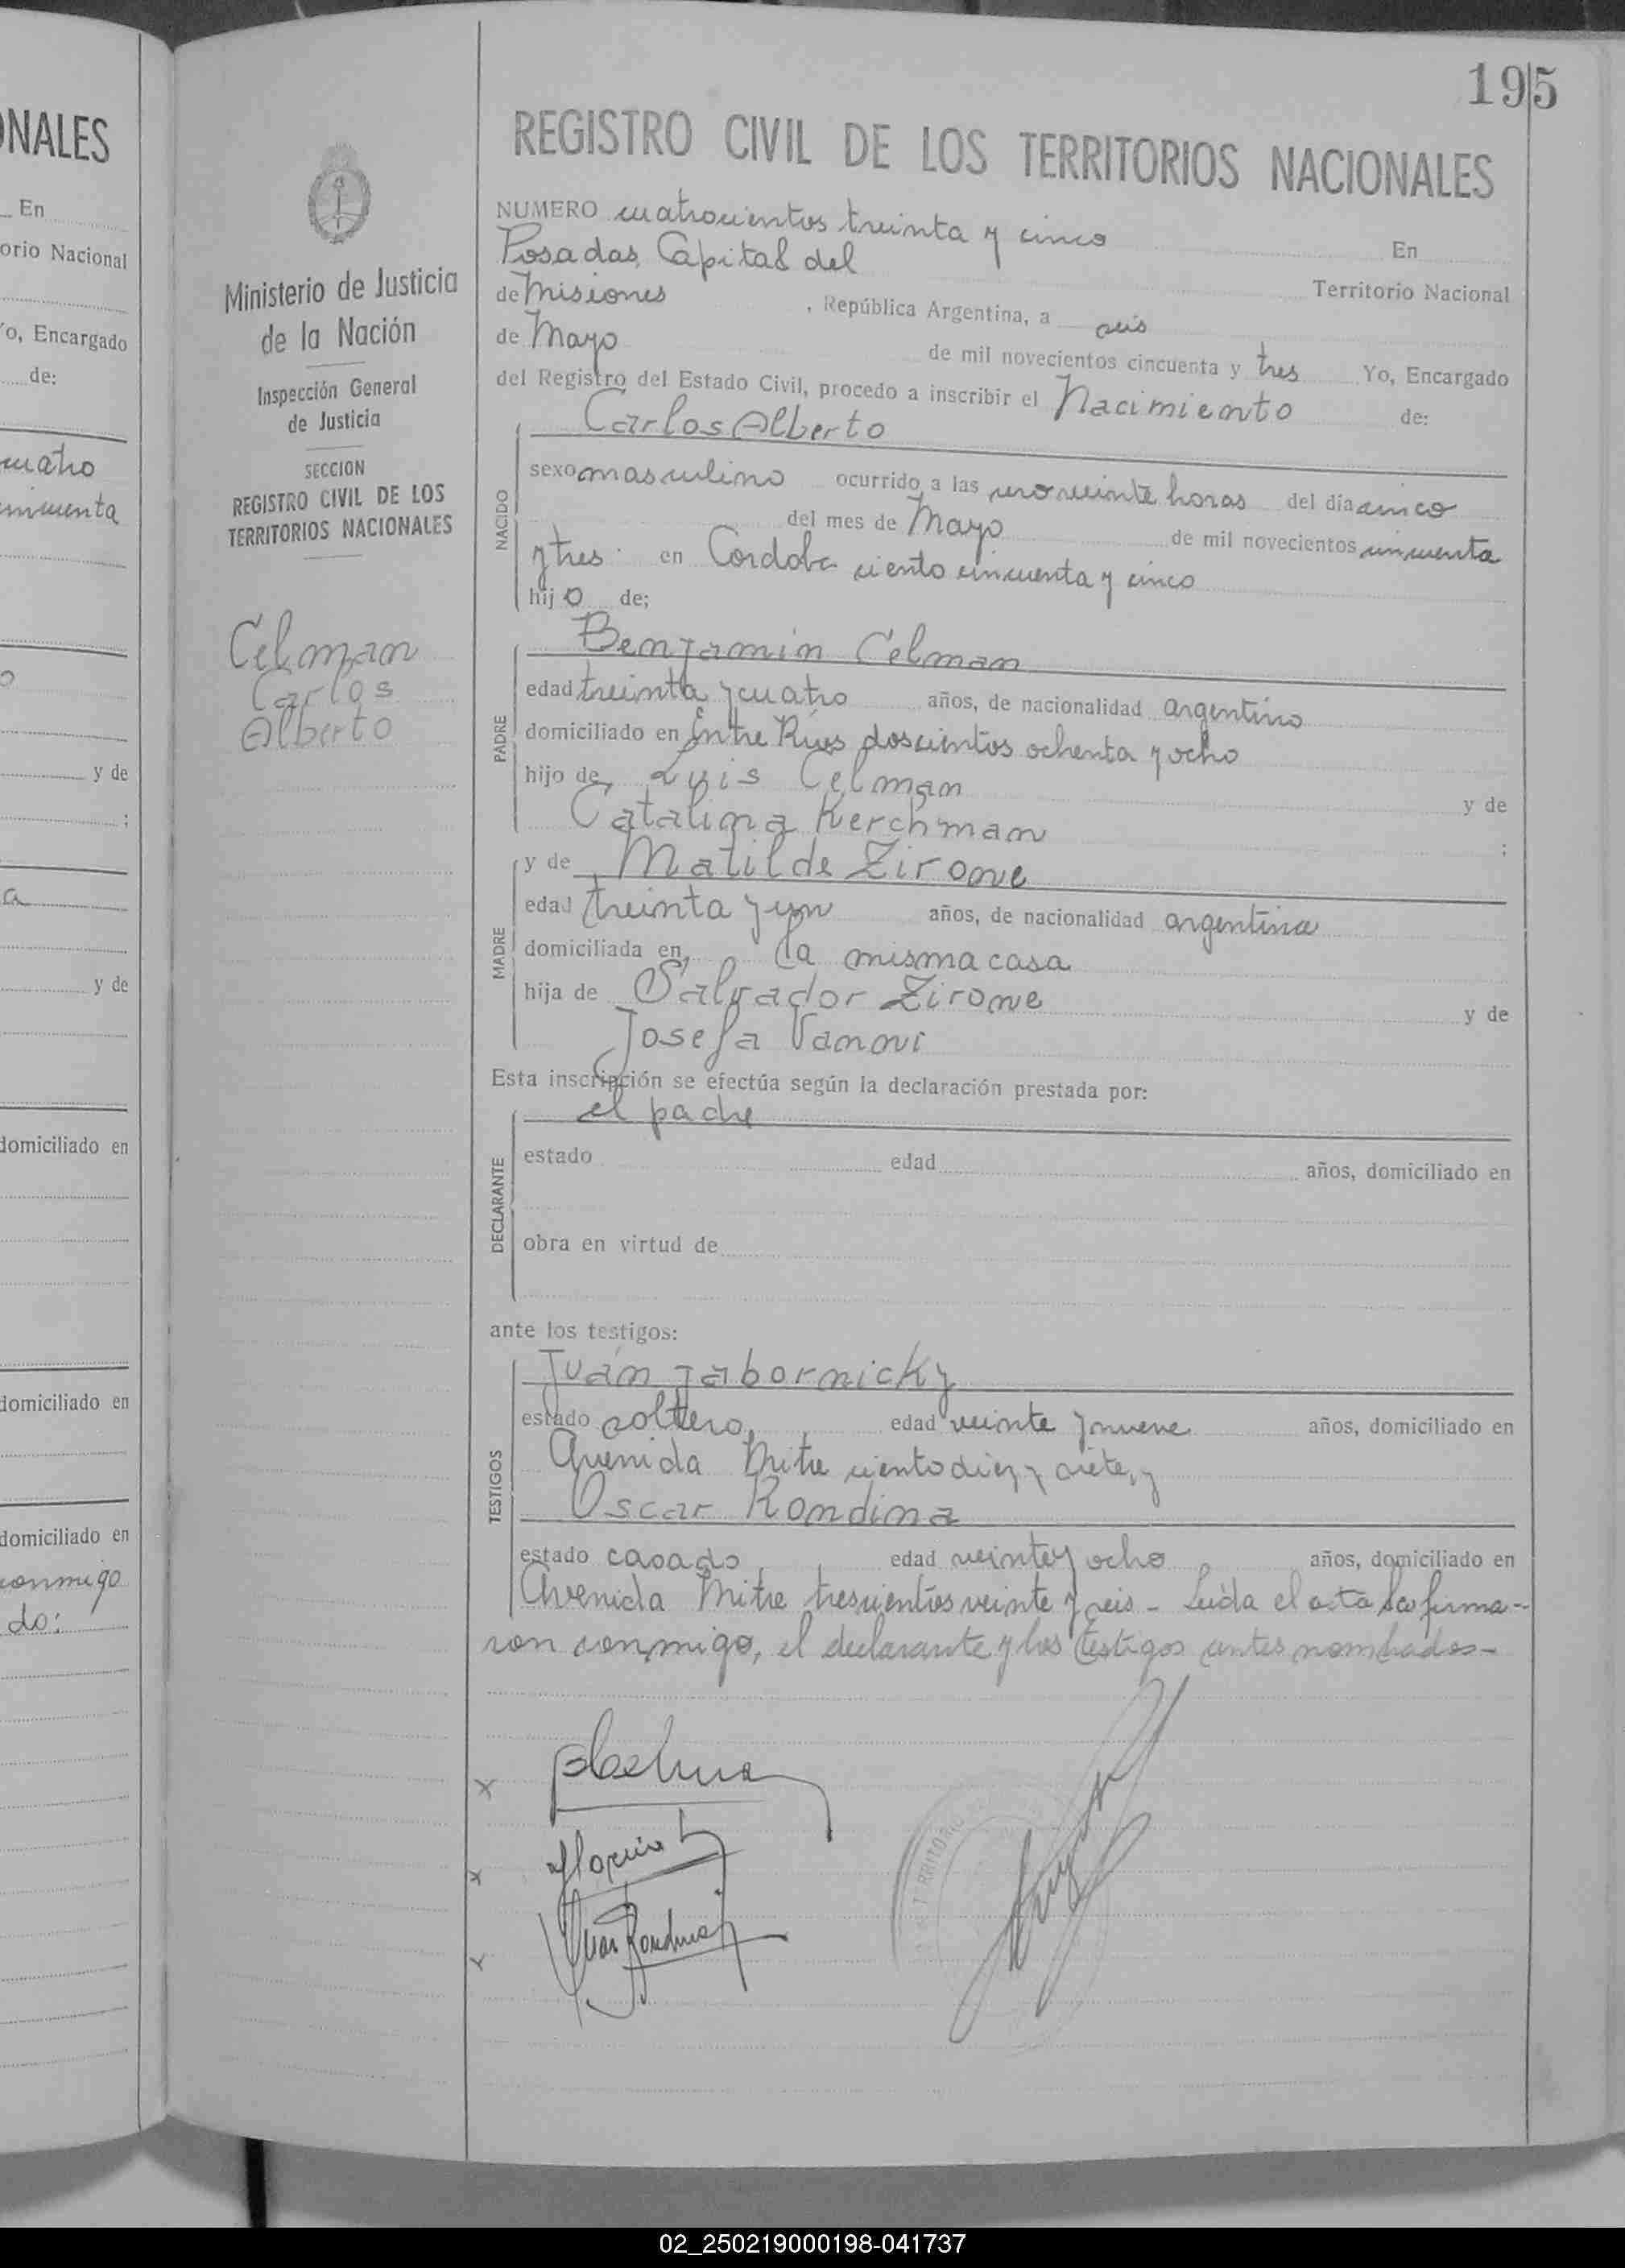 195
ONALES
En
orio Nacional
Yo, Encargado
de:
cuatro
cincuenta
o
y de
;
a
y de
domiciliado en
domiciliado en
domiciliado en
conmigo
do:
Ministerio de Justicia
de la Nación
Inspección General
de Justicia
SECCION
REGISTRO CIVIL DE LOS
TERRITORIOS NACIONALES
Celman
Carlos
Alberto
REGISTRO CIVIL DE LOS TERRITORIOS NACIONALES
NUMERO cuatrocientos treinta y cinco En
Posadas, Capital del Territorio Nacional
de Misiones, República Argentina, a seis
de Mayo de mil novecientos cincuenta y tres Yo, Encargado
del Registro del Estado Civil, procedo a inscribir el Nacimiento de:
Carlos Alberto
NACIDO
sexo masculino ocurrido a las veinte horas del día cinco
del mes de Mayo de mil novecientos cincuenta
y tres en Cordoba ciento cincuenta y cinco
hijo de;
Benjamin Celman
PADRE
edad treinta y cuatro años, de nacionalidad argentino
domiciliado en Entre Ríos doscientos ochenta y ocho
hijo de Luis Celman y de
Catalina Kerchman ;
y de Matilde Zirone
MADRE
edad treinta y un años, de nacionalidad argentina
domiciliada en, la misma casa
hija de Salvador Zirone y de
Josefa Vanovi
Esta inscripción se efectúa según la declaración prestada por:
el padre
DECLARANTE
estado edad años, domiciliado en
obra en virtud de
ante los testigos:
Juan Jabornicky
TESTIGOS
estado soltero, edad veinte y nueve años, domiciliado en
Avenida Mitre ciento diez y siete, y
Oscar Rondina
estado casado, edad veinte y ocho, años, domiciliado en
Avenida Mitre trescientos veinte y seis - Leída el acta la firma-
ron conmigo, el declarante y los testigos antes nombrados-
TERRITORIO
02_250219000198-041737